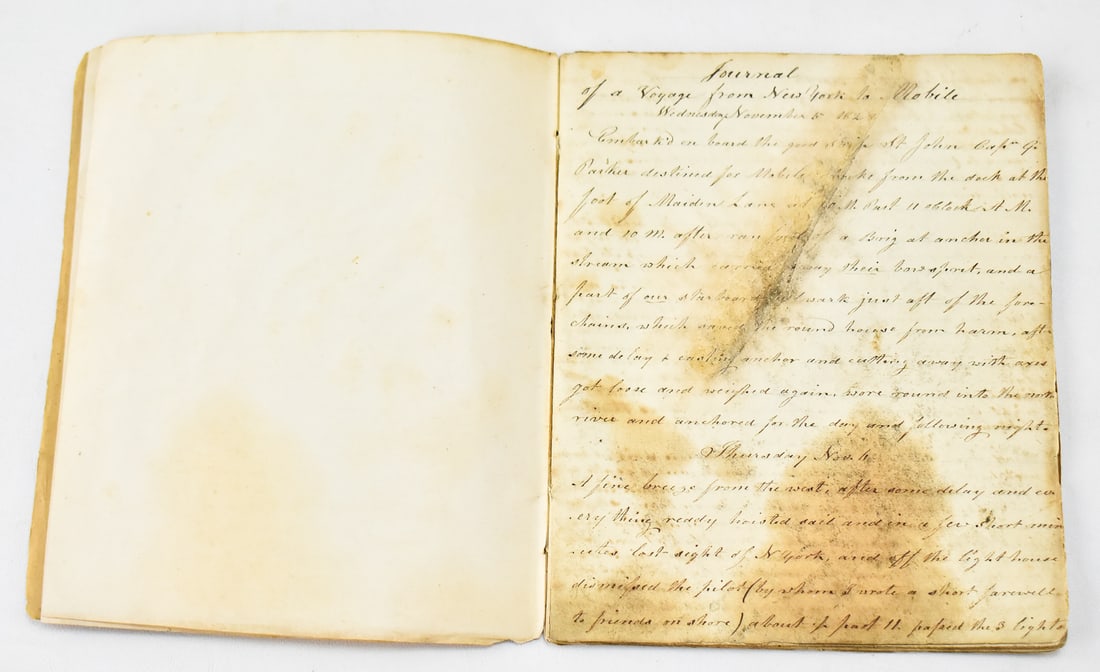 Journal
of a Voyage from New York to Mobile
Wednesday November 5 182
Embark'd on board the good Ship St John Capn G.
Parker destined for Mobile from the dock at the
foot of Maiden Lane at M. Past 11 oClock A.M.
and 10 M. after ran foul of a Brig at anchor in the
stream which carried away their bowspret, and a
part of our starboard bulwark just aft of the fore-
chains, which saved the round house from harm, aft
some delay & casting anchor and cutting away with axes
got loose and weighed again, wore round into the north
river and anchored for the day and following night.
Thursday Nov. 6
A fine breeze from the west, after some delay and ev
ery thing ready hoisted sail and in a few short min
utes lost sight of N York, and off the light house
dismissed the pilot (by whom I wrote a short farewell
to friends on shore) about ½ past 11. passed the 3 lights